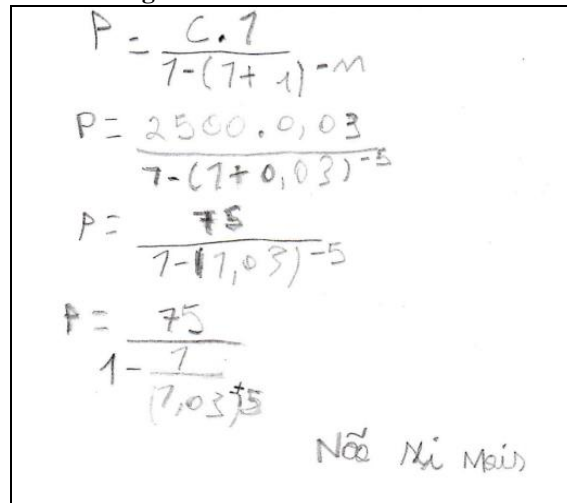 P = C.1
1-(1+1)-n
P = 2500.0,03
1-(1+0,03)-5
P = 75
1-(1,03)-5
P = 75
1 - 1
(1,03)+5
Não sei mais